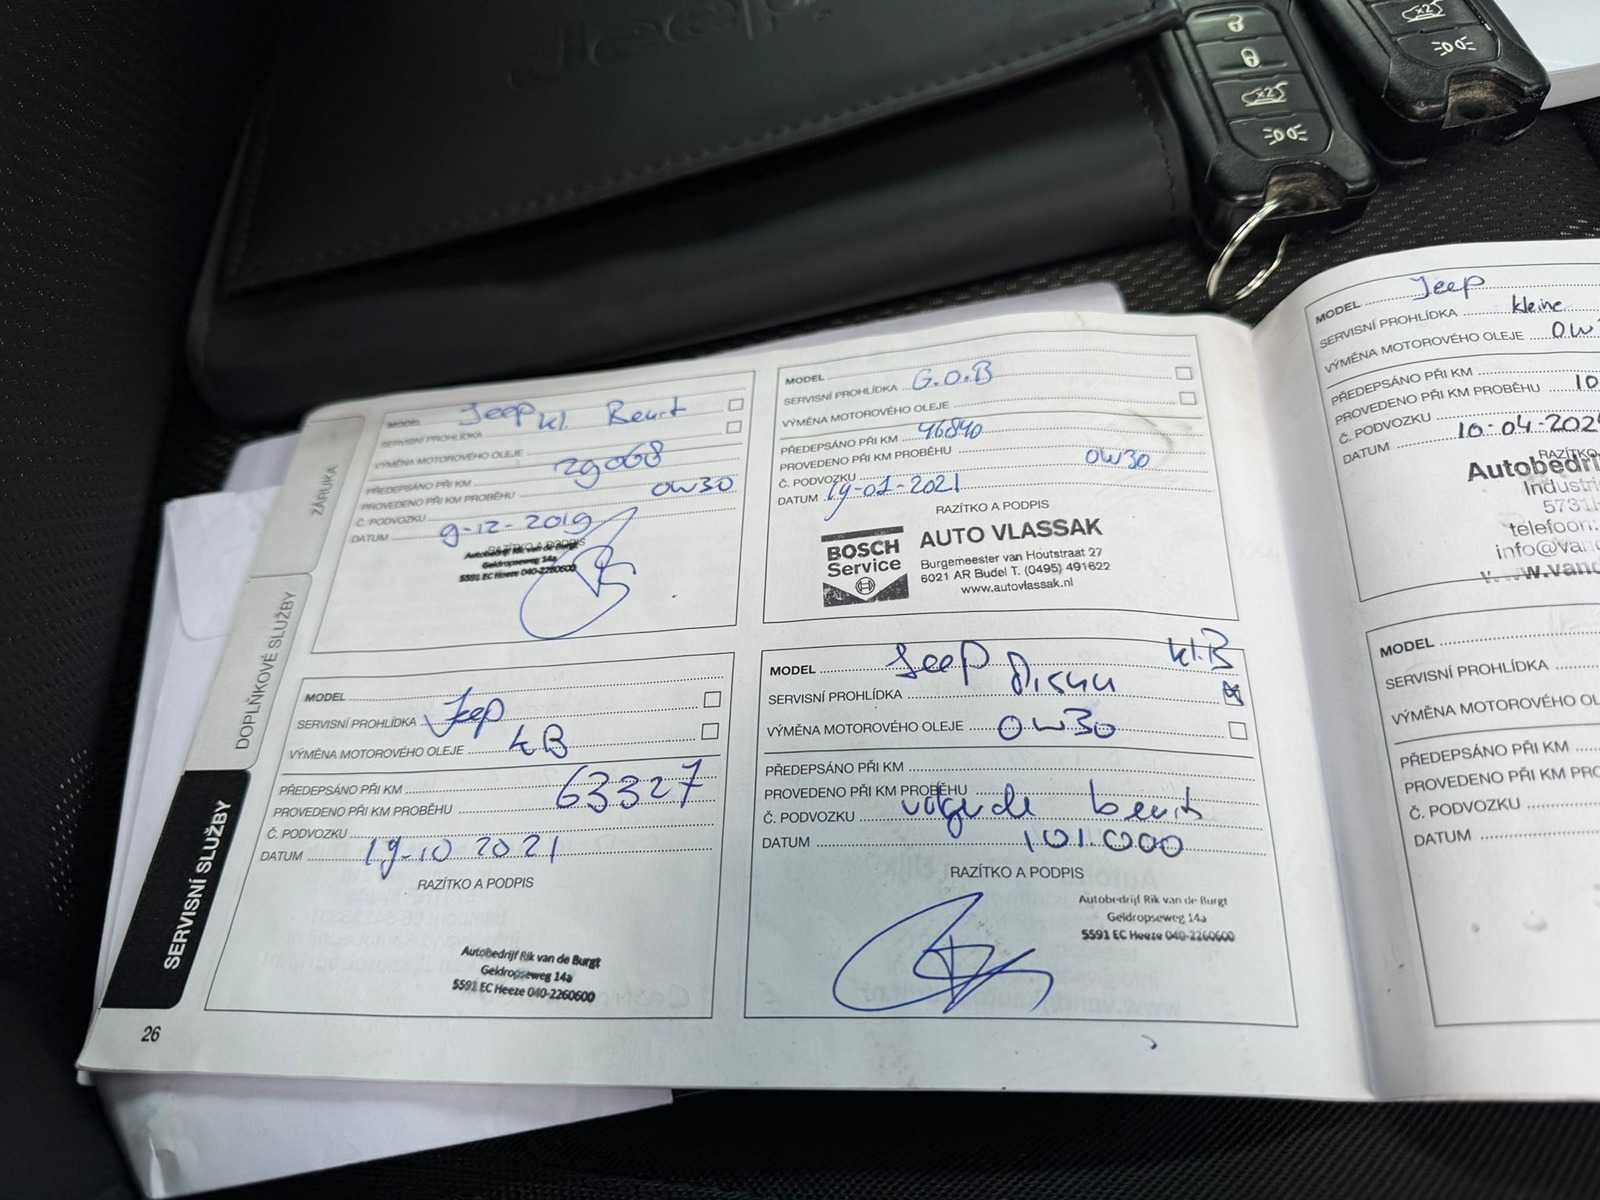 Jeep
ZÁRUKA
DOPLŇKOVÉ SLUŽBY
SERVISNÍ SLUŽBY
MODEL Jeep kl. Beurt
SERVISNÍ PROHLÍDKA
VÝMĚNA MOTOROVÉHO OLEJE
PŘEDEPSÁNO PŘI KM 29068
PROVEDENO PŘI KM PROBĚHU
Č. PODVOZKU 0W30
DATUM 9-12-2019
RAZÍTKO A PODPIS
Autobedrijf Rik van de Burgt
Geldropseweg 14a
5591 EC Heeze 040-2260600
MODEL
SERVISNÍ PROHLÍDKA G.O.B
VÝMĚNA MOTOROVÉHO OLEJE
PŘEDEPSÁNO PŘI KM 46840
PROVEDENO PŘI KM PROBĚHU
Č. PODVOZKU 0W30
DATUM 19-01-2021
RAZÍTKO A PODPIS
BOSCH
Service
AUTO VLASSAK
Burgemeester van Houtstraat 27
6021 AR Budel T. (0495) 491622
www.autovlassak.nl
MODEL
SERVISNÍ PROHLÍDKA Jeep
VÝMĚNA MOTOROVÉHO OLEJE kB
PŘEDEPSÁNO PŘI KM
PROVEDENO PŘI KM PROBĚHU 63327
Č. PODVOZKU
DATUM 19-10 2021
RAZÍTKO A PODPIS
Autobedrijf Rik van de Burgt
Geldropseweg 14a
5591 EC Heeze 040-2260600
MODEL Jeep kl.B
SERVISNÍ PROHLÍDKA
VÝMĚNA MOTOROVÉHO OLEJE 0W30
PŘEDEPSÁNO PŘI KM
PROVEDENO PŘI KM PROBĚHU
Č. PODVOZKU beurt
DATUM 101.000
RAZÍTKO A PODPIS
Autobedrijf Rik van de Burgt
Geldropseweg 14a
5591 EC Heeze 040-2260600
26
MODEL Jeep
SERVISNÍ PROHLÍDKA kleine
VÝMĚNA MOTOROVÉHO OLEJE 0W
PŘEDEPSÁNO PŘI KM
PROVEDENO PŘI KM PROBĚHU 10
Č. PODVOZKU
DATUM 10-04-202
RAZÍTKO
Autobedri
Industri
5731
telefoon:
info@van
www.vand
MODEL
SERVISNÍ PROHLÍDKA
VÝMĚNA MOTOROVÉHO OL
PŘEDEPSÁNO PŘI KM
PROVEDENO PŘI KM PRO
Č. PODVOZKU
DATUM